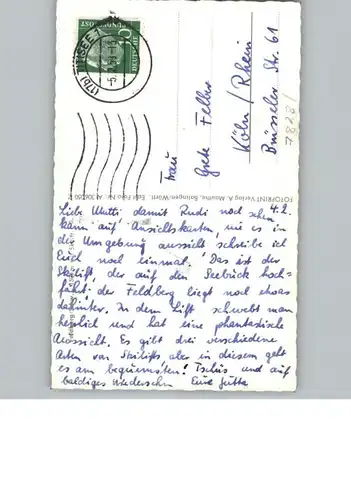 Liebe Mutti damit Rudi noch sehen 4.2.
kann auf Ansichtskarten, wie es in
der Umgebung aussicht schreibe ich
Euch noch einmal. Das ist der
Skilift, der auf den Seebuck hoch-
fährt. der Feldberg liegt noch etwas
dahinter. In dem Lift schwebt man
herrlich und hat eine phantastische
Aussicht. Es gibt drei verschiedene
Arten von Skilifts aber in diesem geht
es am bequemsten! Tschüs und auf
baldiges Wiedersehn Eure Jutta
Frau
Grete Felber
Köln/Rhein
Brüsseler Str. 61
7828/
DEUTSCHE
BUNDESPOST
10
(17b) TITISEE
FOTOPRINT Verlag A.